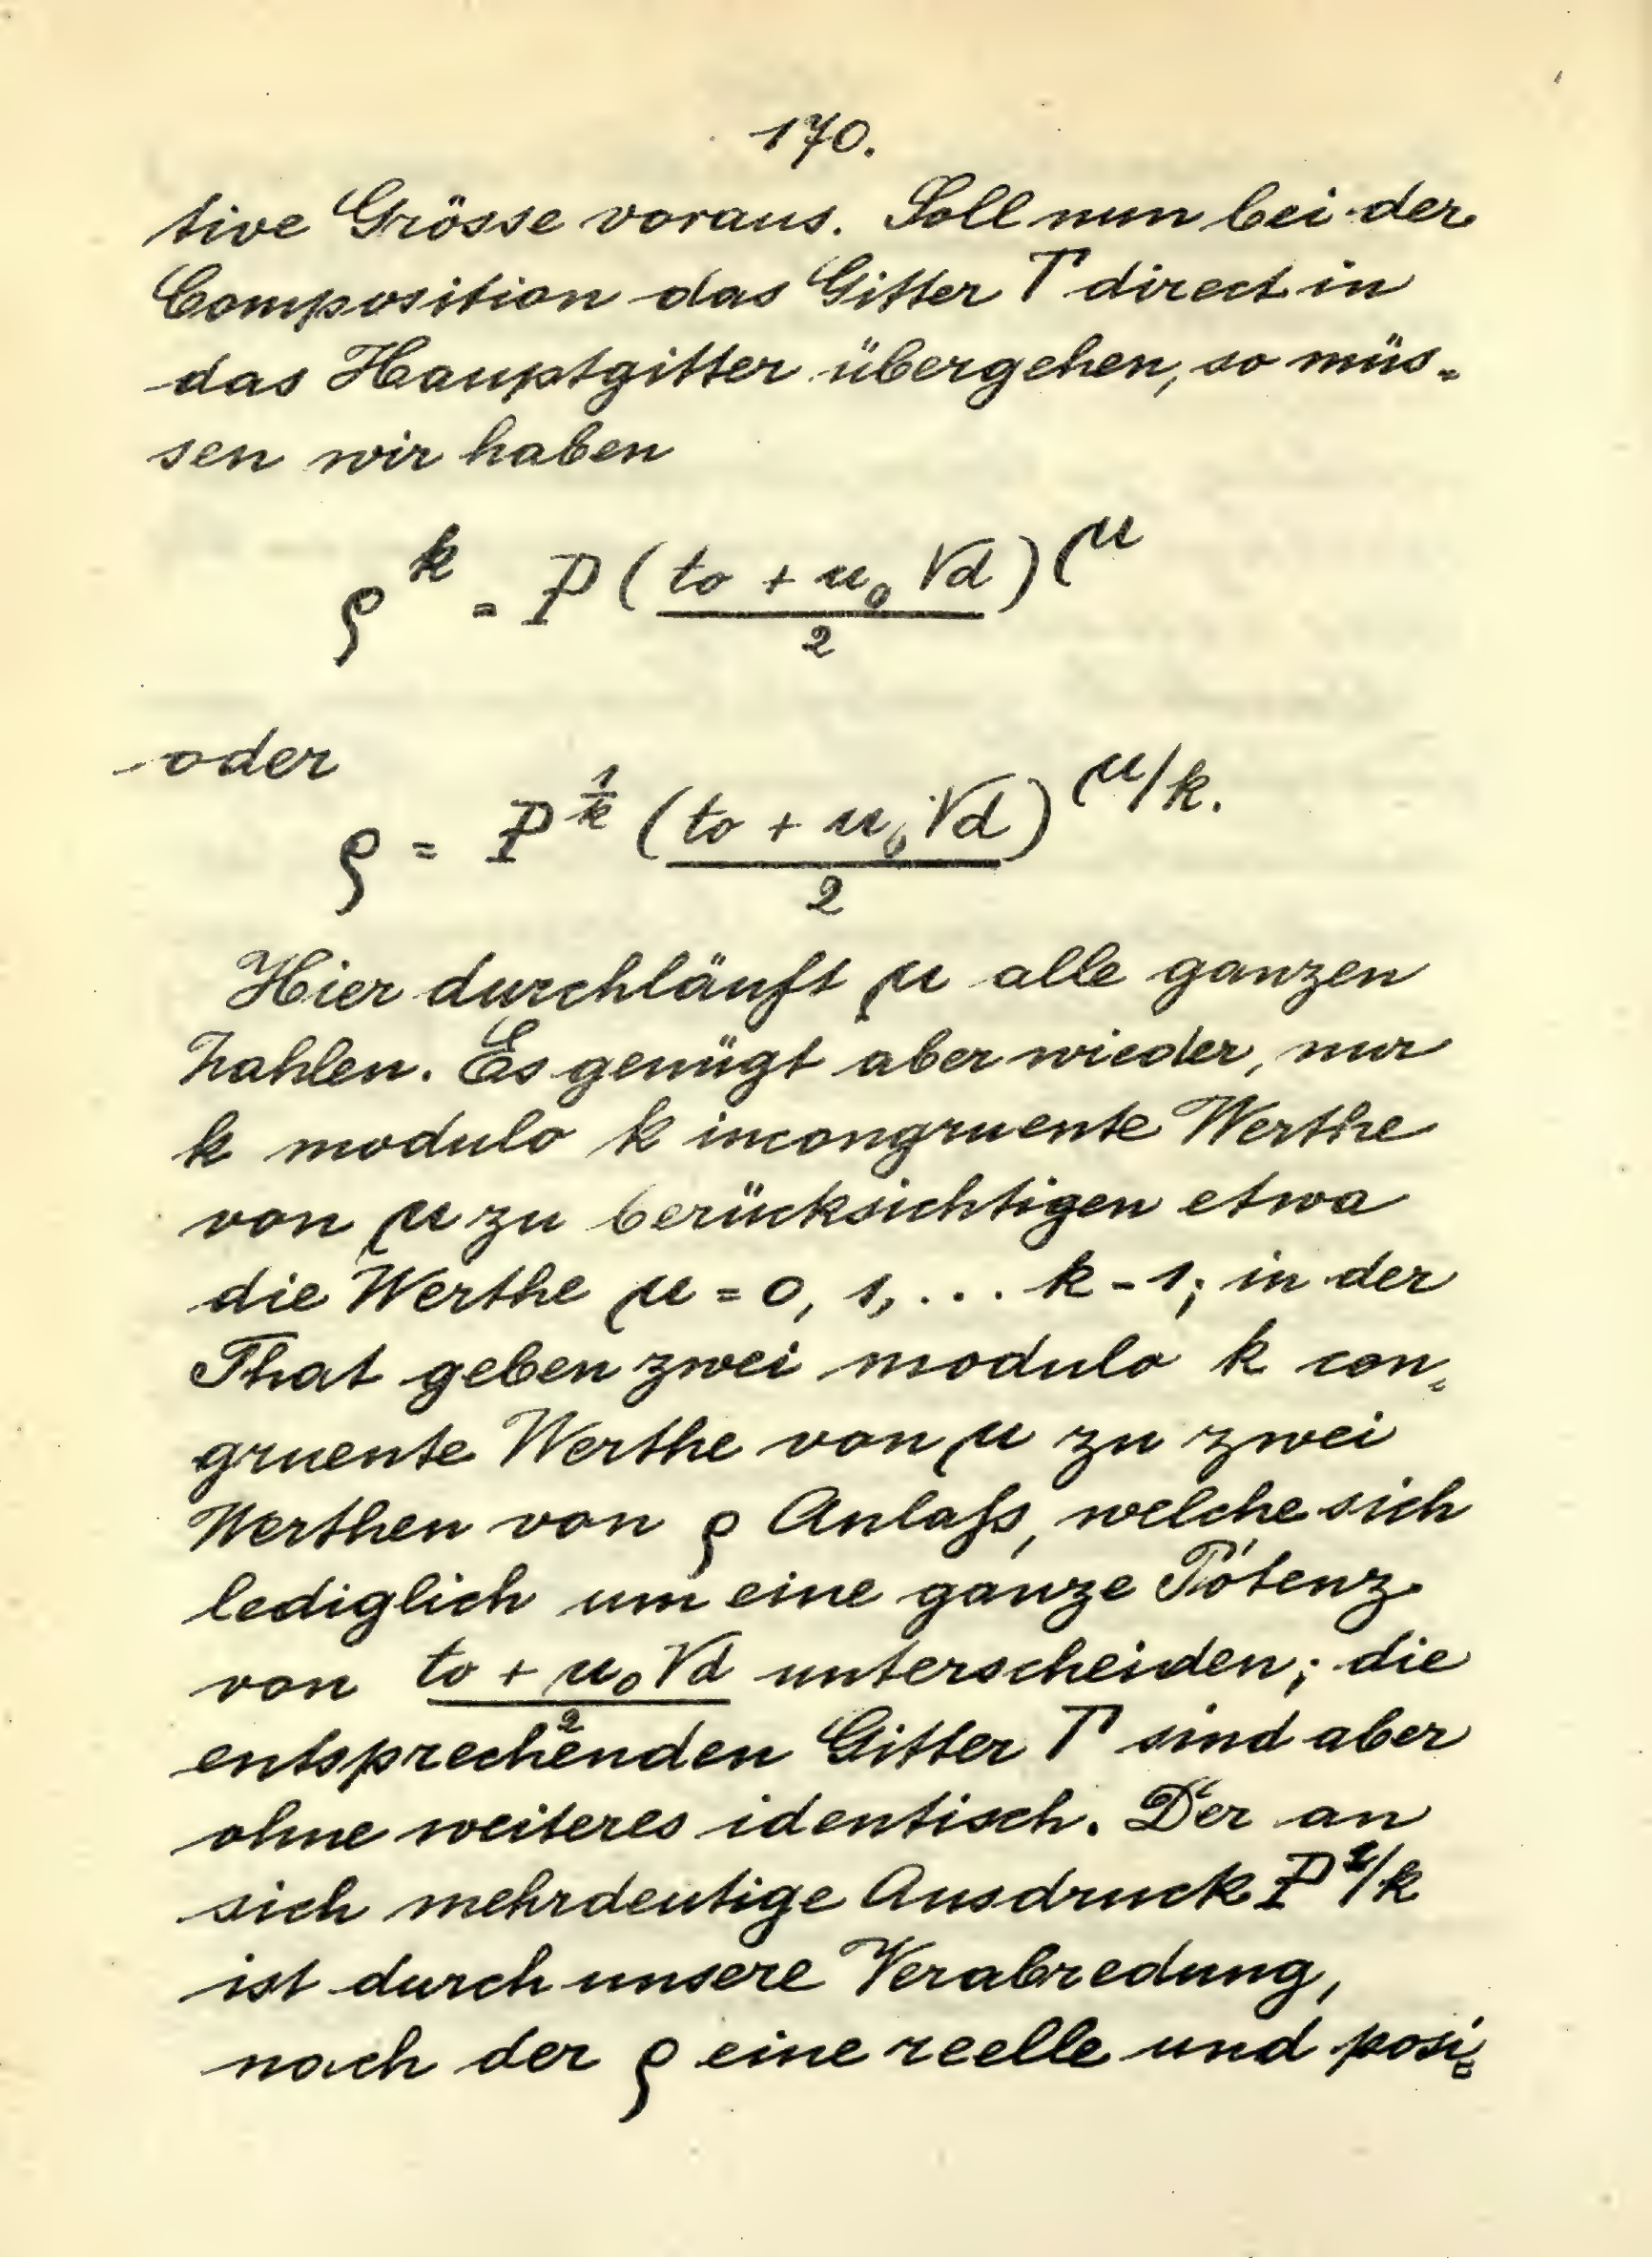 170.
tive Grösse voraus. Soll nun bei der
Composition das Gitter Γ direct in
das Hauptgitter übergehen, so müs-
sen wir haben
ρ^k = P (t₀ + u₀ √d / 2)^μ
oder
ρ = P^{1/k} (t₀ + u₀ √d / 2)^{μ/k}.
Hier durchläuft μ alle ganzen
Zahlen. Es genügt aber wieder, nur
k modulo k incongruente Werthe
von μ zu berücksichtigen etwa
die Werthe μ = 0, 1, ... k - 1; in der
That geben zwei modulo k con-
gruente Werthe von μ zu zwei
Werthen von ρ Anlaſs, welche sich
lediglich um eine ganze Potenz
von t₀ + u₀ √d / 2 unterscheiden; die
entsprechenden Gitter Γ sind aber
ohne weiteres identisch. Der an
sich mehrdeutige Ausdruck P^{1/k}
ist durch unsere Verabredung,
nach der ρ eine reelle und posi-